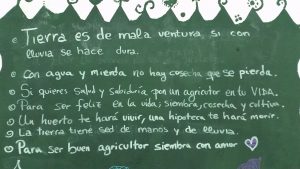 Tierra es de mala ventura, si con
lluvia se hace dura.
Con agua y mierda no hay cosecha que se pierda.
Si quieres salud y sabiduría pon un agricutor en tu VIDA.
Para ser feliz en la vida; siembra, cosecha y cultiva.
Un huerto te hará vivir, una hipoteca te hará morir.
La tierra tiene sed de manos y de lluvia.
Para ser buen agricultor siembra con amor